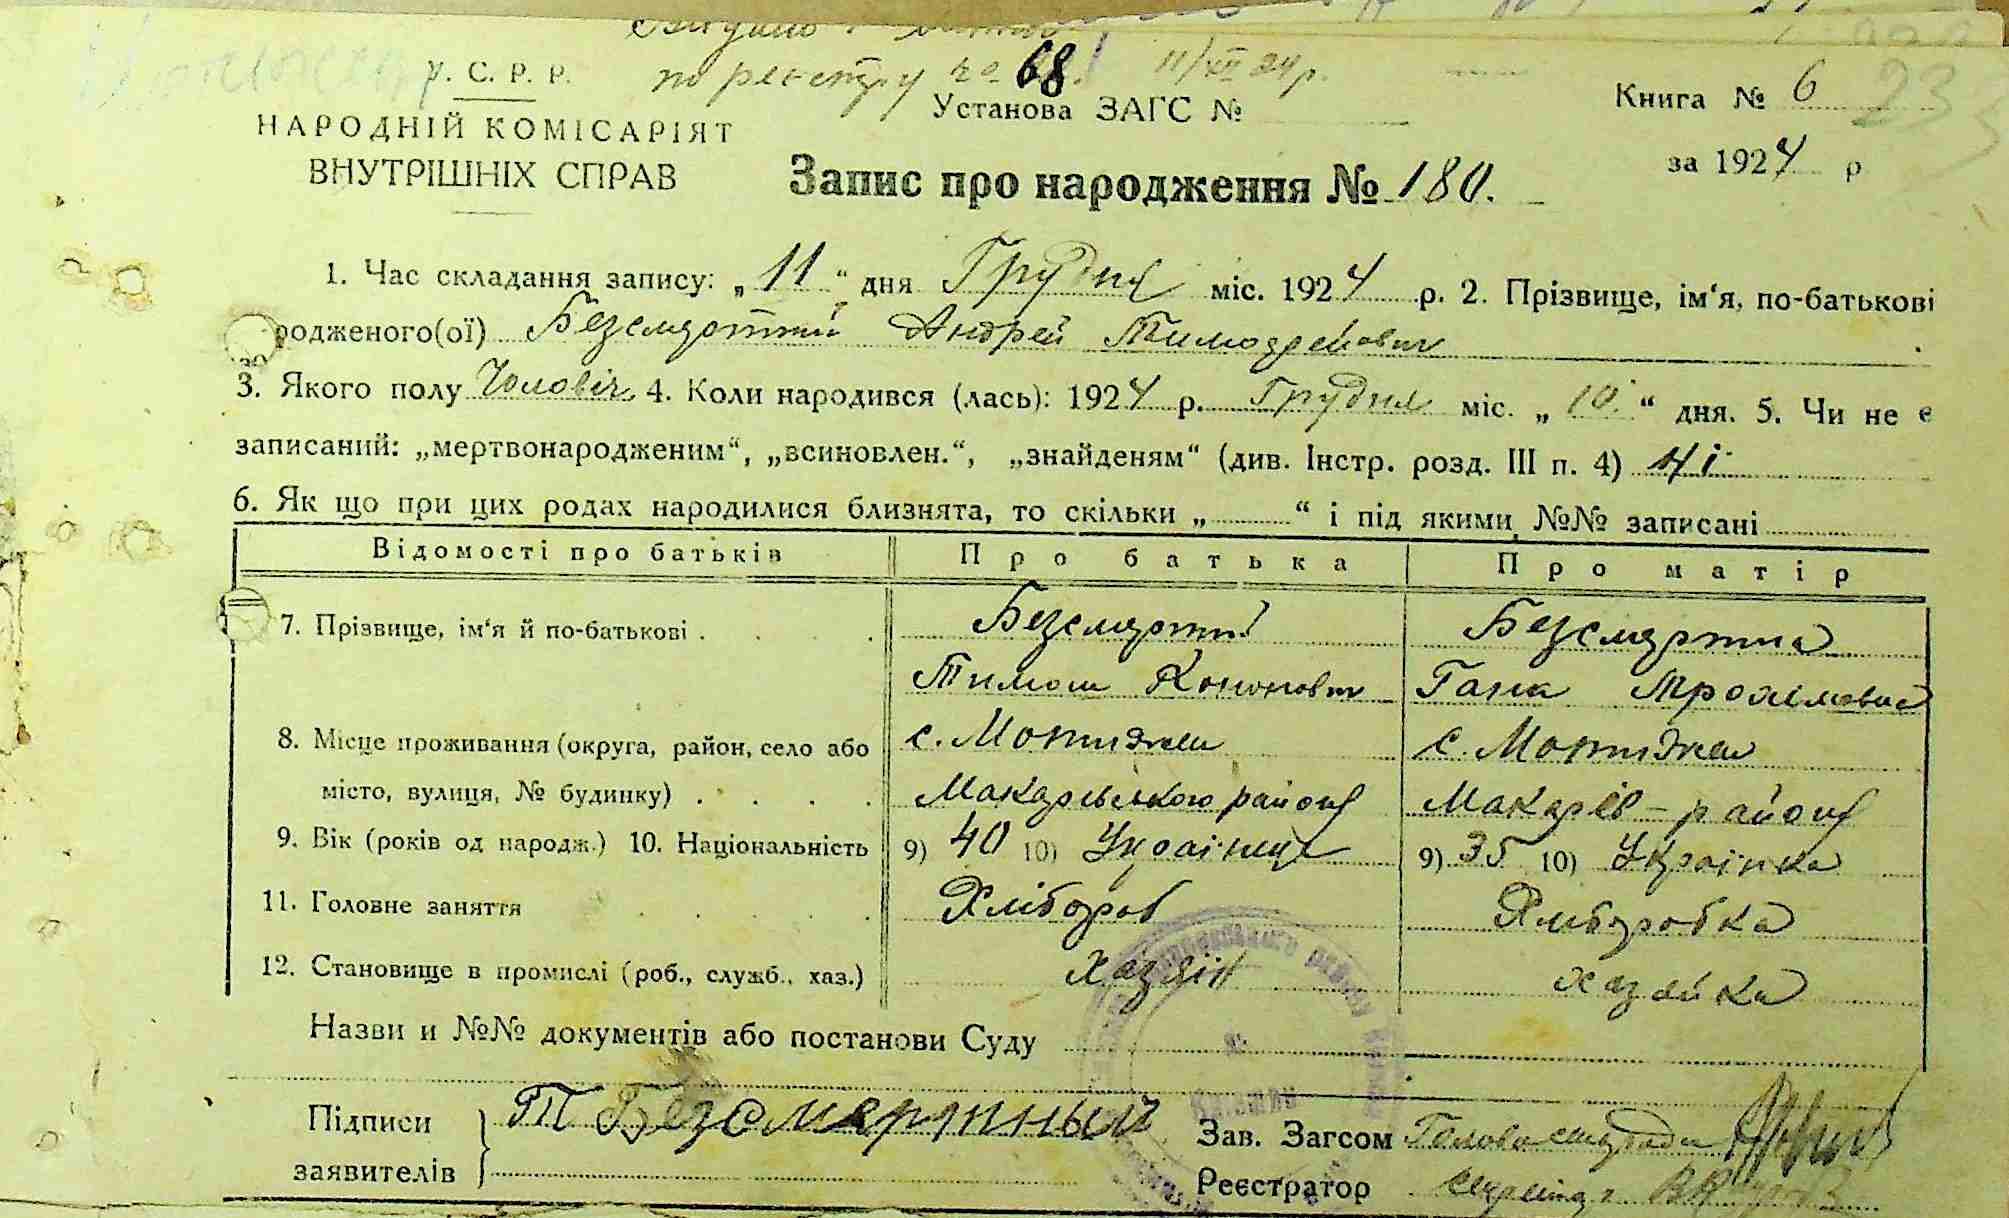 по реєстру № 68. 11/XII 24 р.
У. С. Р. Р.
НАРОДНІЙ КОМІСАРІЯТ
ВНУТРІШНІХ СПРАВ
Установа ЗАГС №
Книга № 6
за 1924 р
Запис про народження № 180.
1. Час складання запису: „11“ дня Грудня міс. 1924 р. 2. Прізвище, ім‘я, по-батькові
родженого(ої) Безсмертний Андрей Тимофейович
3. Якого полу Чоловіч. 4. Коли народився (лась): 1924 р. Грудня міс. „10.“ дня. 5. Чи не є
записаний: „мертвонародженим“, „всиновлен.“, „знайденям“ (див. Інстр. розд. III п. 4) ні
6. Як що при цих родах народилися близнята, то скільки „ “ і під якими №№ записані
Відомості про батьків Про батька Про матір
7. Прізвище, ім‘я й по-батькові . Безсмертний Безсмертна
Тимош Кононович Ганна Трохимовна
8. Місце проживання (округа, район, село або с. Мотижин с. Мотижин
місто, вулиця, № будинку) . Макарівського району Макарів – району
9. Вік (років од народж.) 10. Національність 9) 40 10) Українець 9) 35 10) Українка
11. Головне заняття Хлібороб Хліборобка
12. Становище в промислі (роб., служб., хаз.) хазяїн хазяйка
Назви и №№ документів або постанови Суду
Підписи
заявителів
Т Безсмертный
Зав. Загсом Голова сільради
Реєстратор Секретар